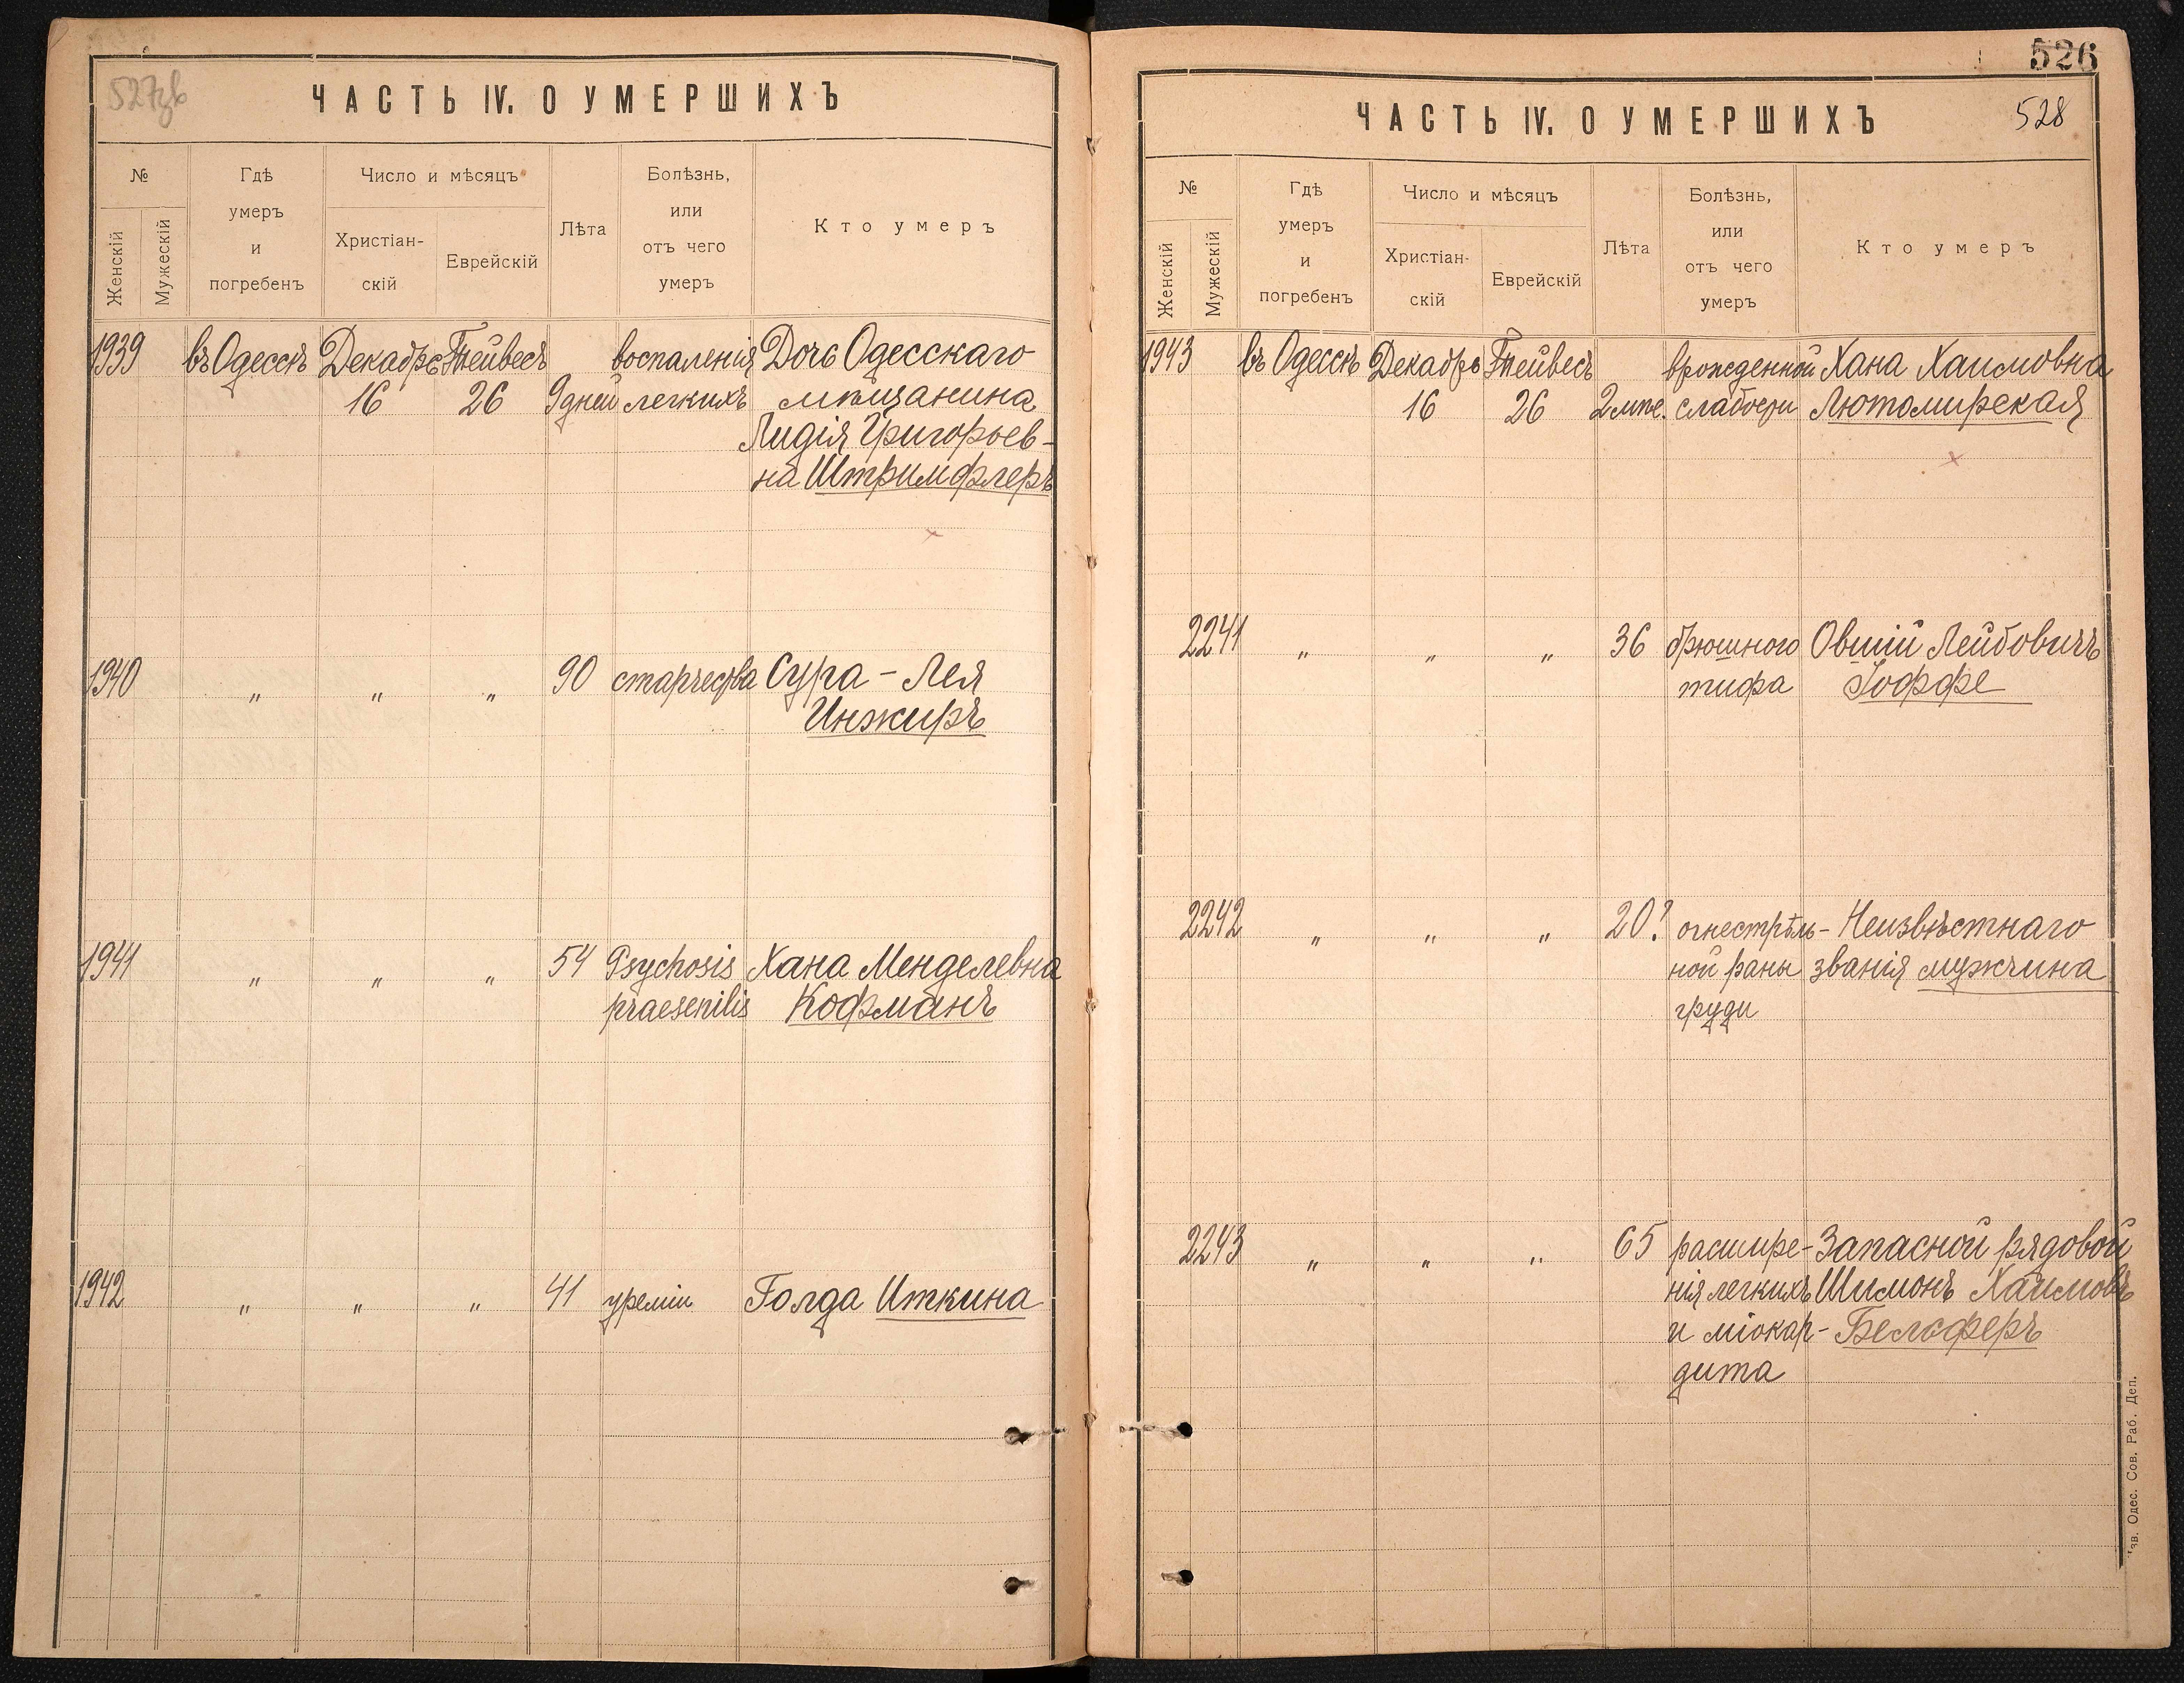 527зв
ЧАСТЬ IV. О УМЕРШИХЪ
№
Женскій
Мужескій
Гдѣ
умеръ
и
погребенъ
Число и мѣсяцъ
Христіан-
скій
Еврейскій
Лѣта
Болѣзнь,
или
отъ чего
умеръ
Кто умеръ
1939 въ Одессѣ Декабрь Тейвесъ воспаленія Дочь Одесскаго
16 26 9 дней легкихъ мѣщанина
Лидія Григорьев-
на Штримфлеръ
1940 " " " 90 старчества Сура - Лея
Инжиръ
1941 " " " 54 Psychosis Хана Менделевна
praesenilis Кофманъ
1942 " " " 41 уреміи Голда Иткина
526
ЧАСТЬ IV. О УМЕРШИХЪ
528
№
Женскій
Мужескій
Гдѣ
умеръ
и
погребенъ
Число и мѣсяцъ
Христіан-
скій
Еврейскій
Лѣта
Болѣзнь,
или
отъ чего
умеръ
Кто умеръ
1943 въ Одессѣ Декабрь Тейвесъ врожденной Хана Хаимовна
16 26 слабости Лютомирская
2241 " " " 36 брюшного Овшій Лейбовичъ
тифа Іоффе
2242 " " " 20? огнестрѣль- Неизвѣстнаго
ной раны званія мужчина
груди
2243 " " " 65 расшире- Запасной рядовой
нія легкихъ Шимонъ Хаимовъ
и міокар- Белоферъ
дита
Изв. Одес. Сов. Раб. Деп.